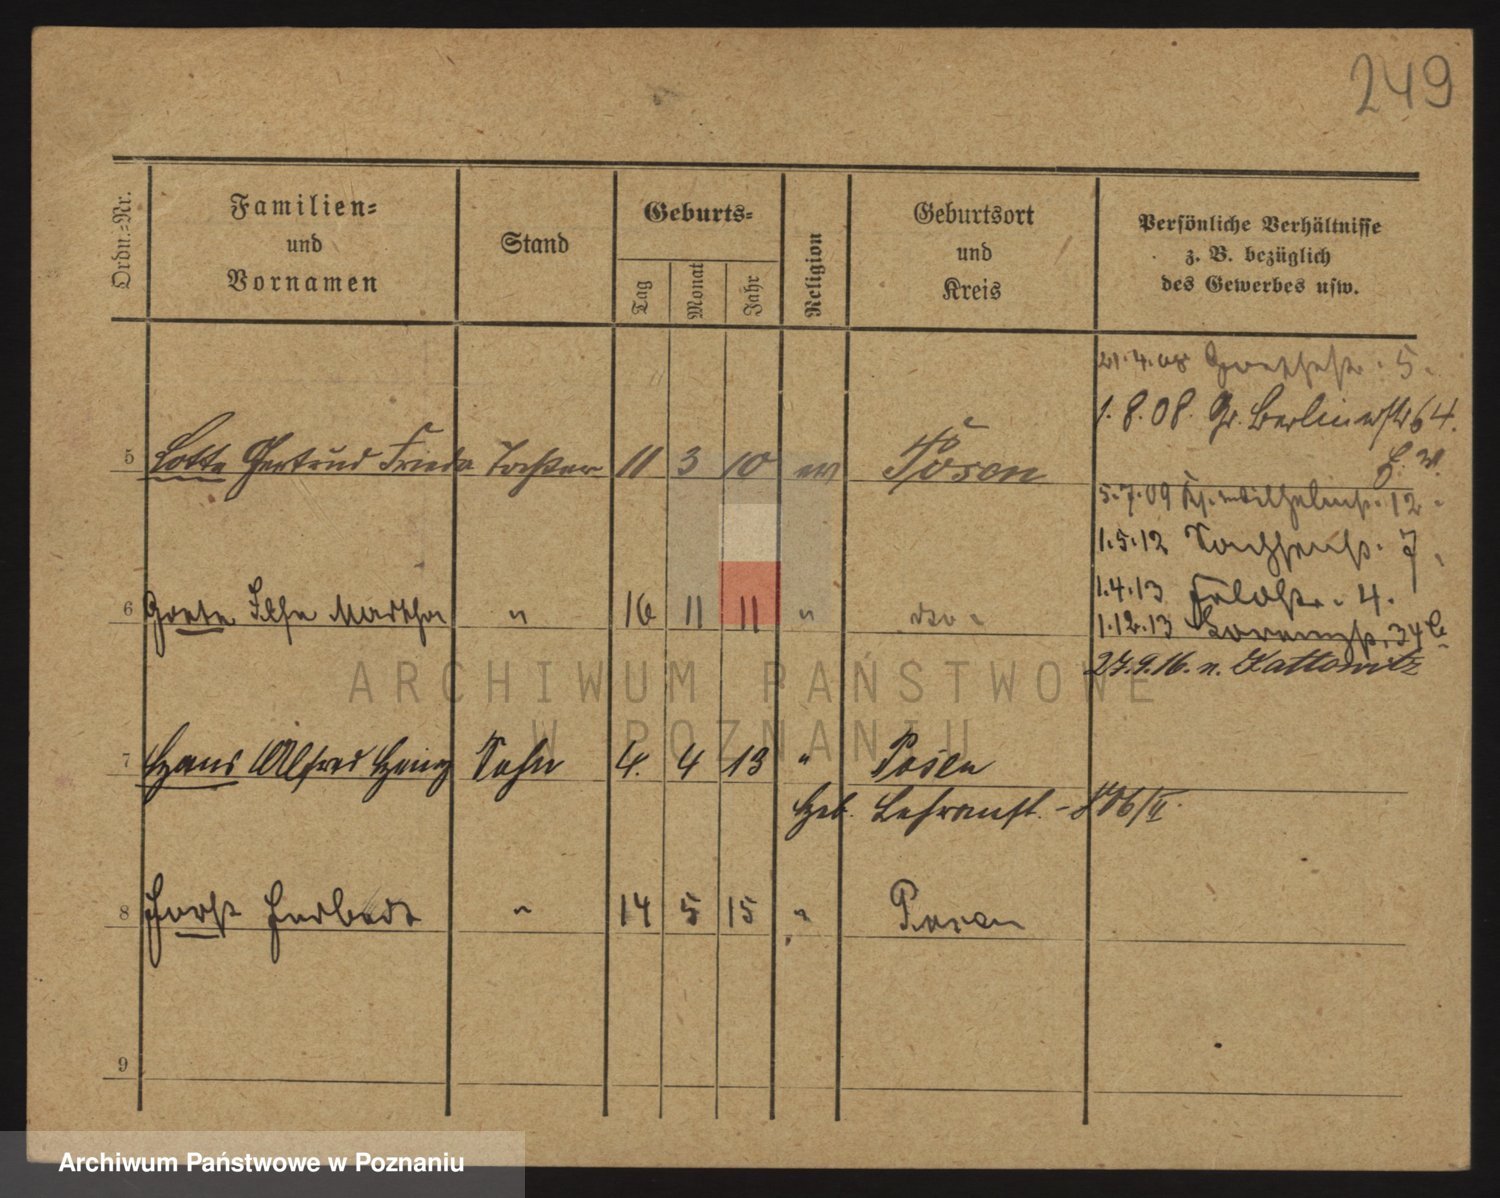 249
Ordn.=Nr.
Familien=
und
Vornamen
Stand
Geburts=
Tag
Monat
Jahr
Religion
Geburtsort
und
Kreis
Persönliche Verhältnisse
z. B. bezüglich
des Gewerbes usw.
21.4.08 Goethestr. 5.
1.8.08. Gr. Berlinerstr 64.
5 Lotte Gertrud Frieda Tochter 11 3 10 ev Posen
5.7.09 Kr. Wilhelmstr. 12.
1.5.12 7
1.4.13 Feldstr. 4.
6 Grete Ilse Martha " 16 11 11 " dto.
1.12.13 34
27.9.16. n. Kattowitz
7 Hans Alfred Heinz Sohn 4. 4 13 " Posen
Geb. Lehranst.
8 Horst Herbert " 14 5 15 " Posen
9
ARCHIWUM PAŃSTWOWE
W POZNANIU
Archiwum Państwowe w Poznaniu